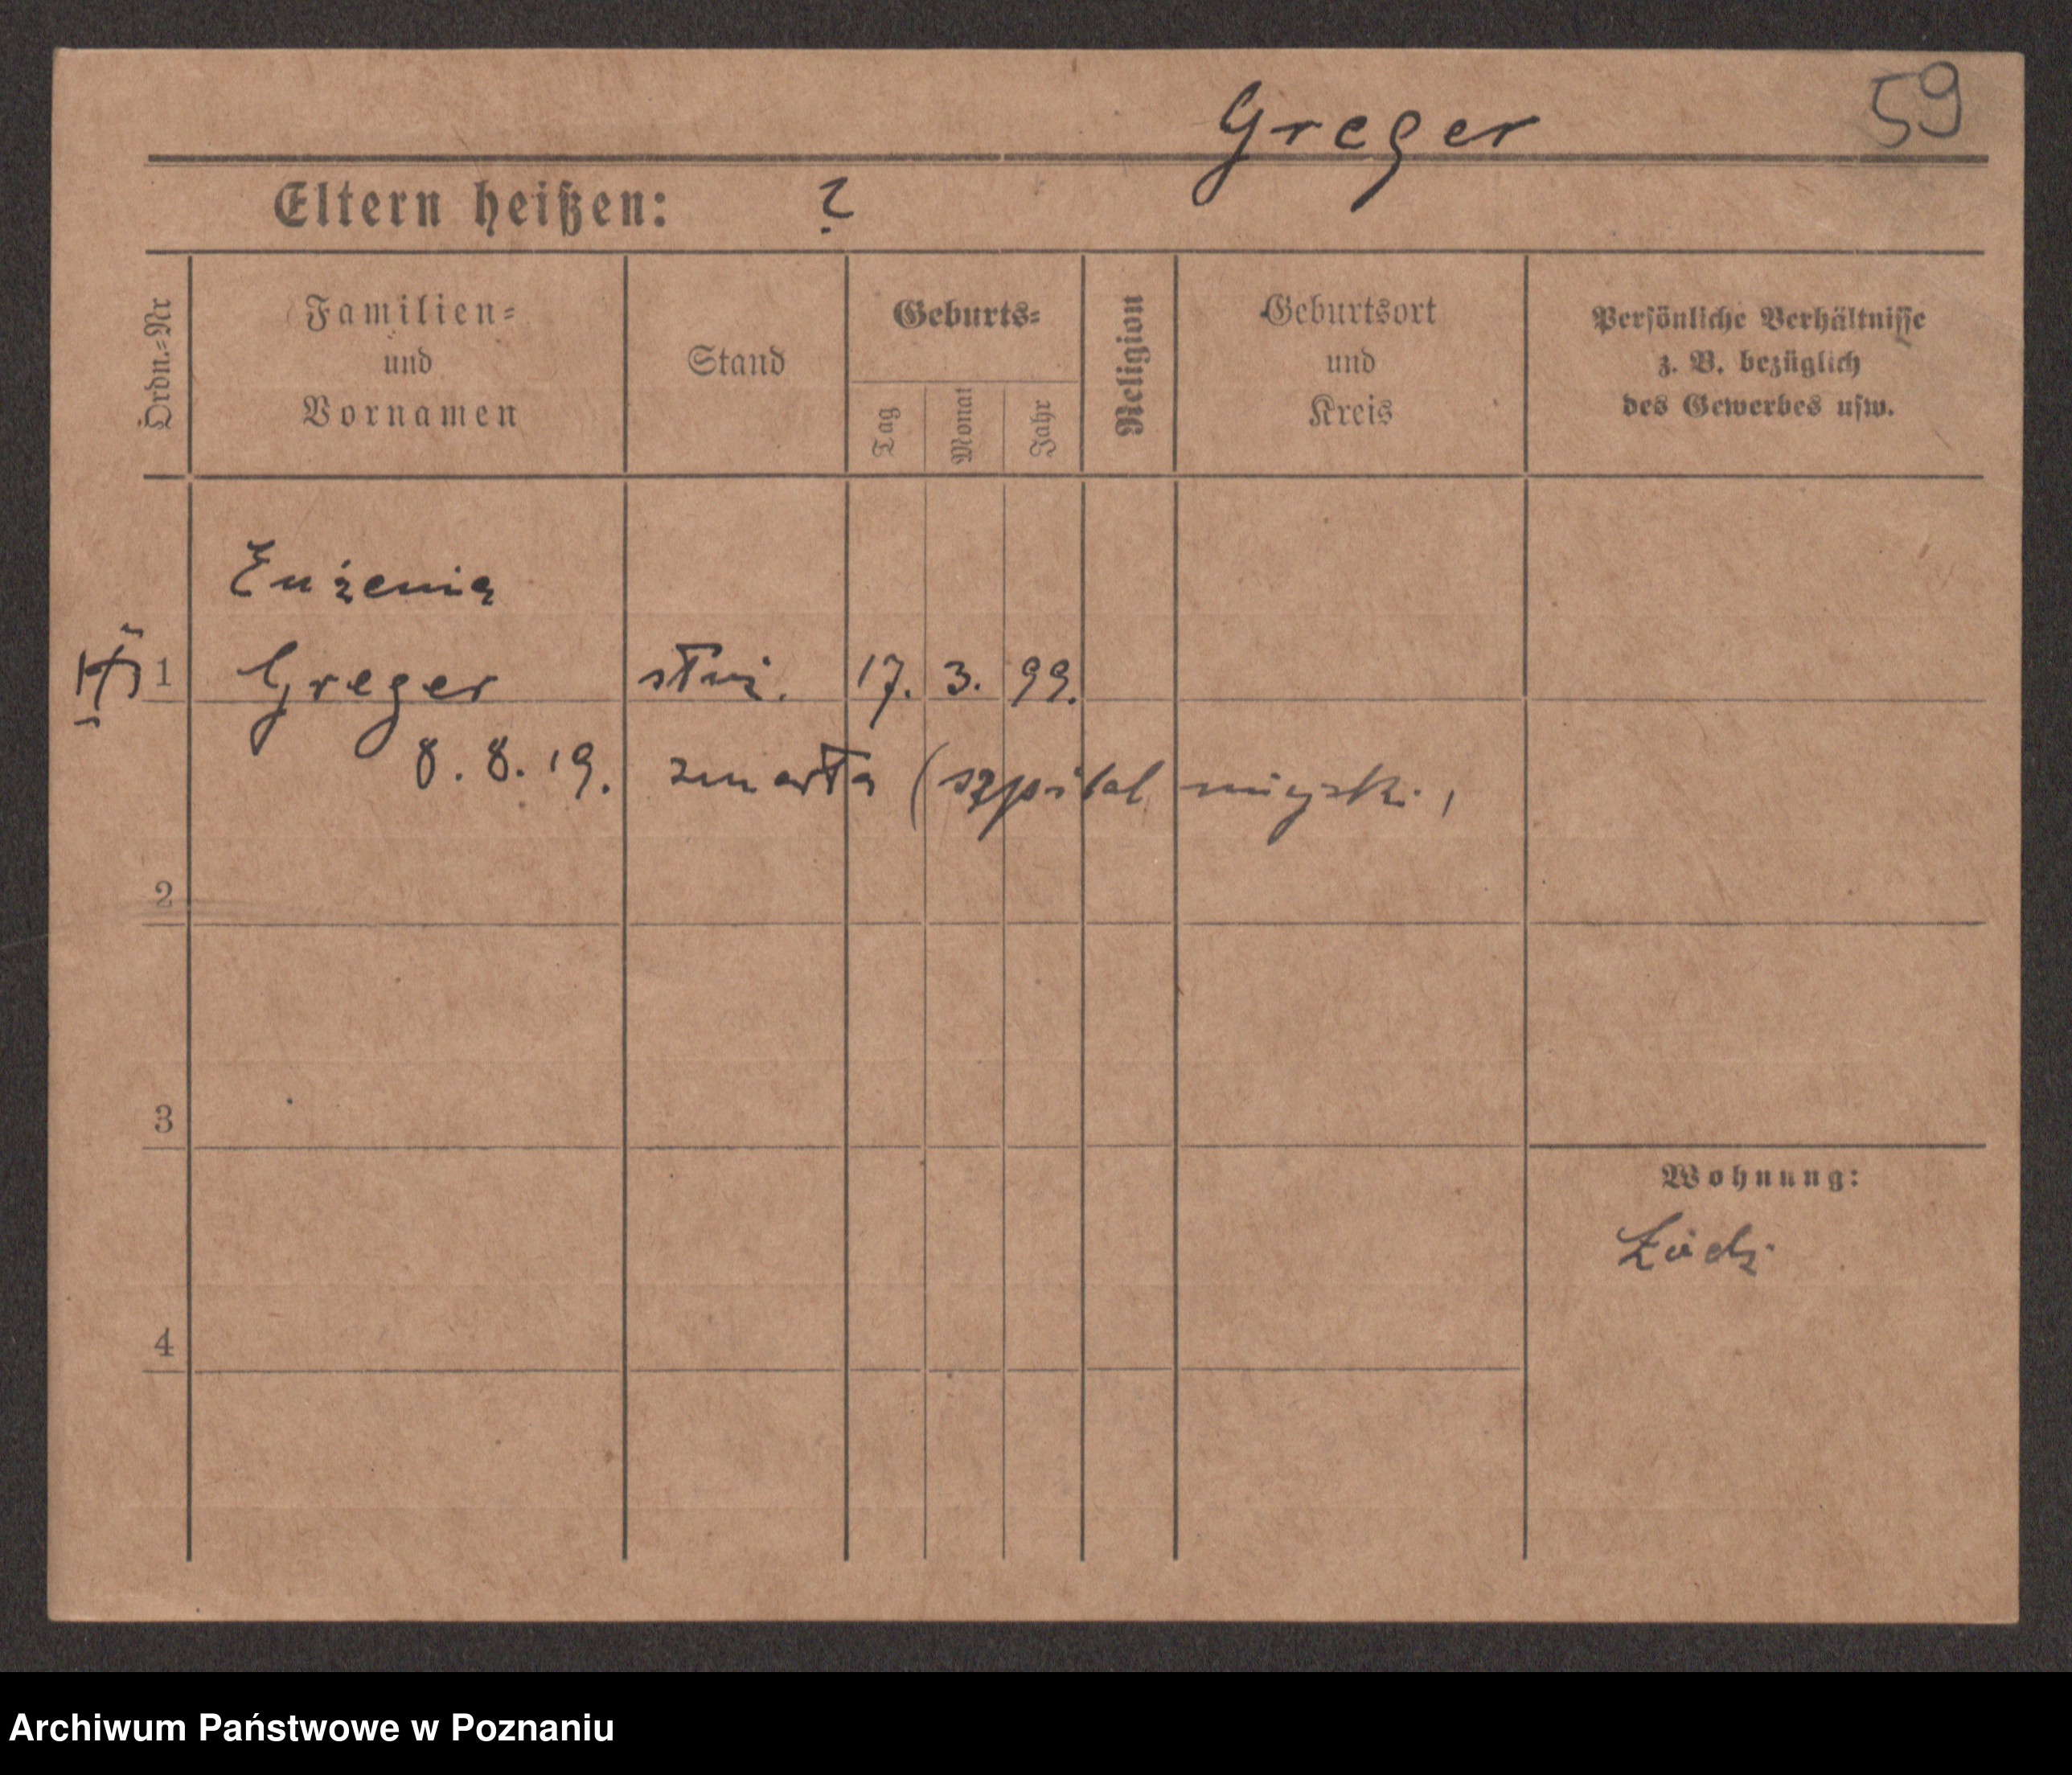 Greger 59
Eltern heißen: ?
Ordn.-Nr
Familien-
und
Vornamen
Stand
Geburts-
Tag
Monat
Jahr
Religion
Geburtsort
und
Kreis
Persönliche Verhältnisse
z. B. bezüglich
des Gewerbes usw.
Eużenia
1 Greger służ. 17. 3. 99.
8. 8. 19. zmarła (szpital miejski)
2
3
Wohnung:
Łódź
4
Archiwum Państwowe w Poznaniu